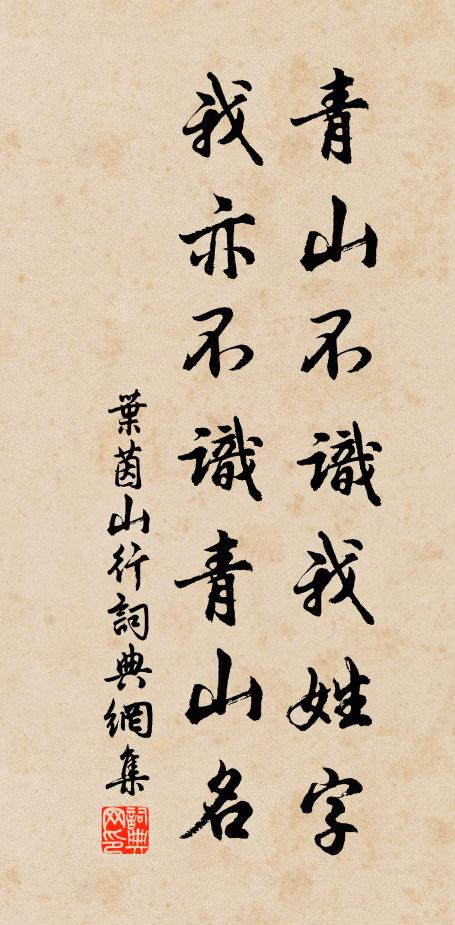 青山不識我姓字
我亦不識青山名
葉茵山行詞典網集
詞典網印